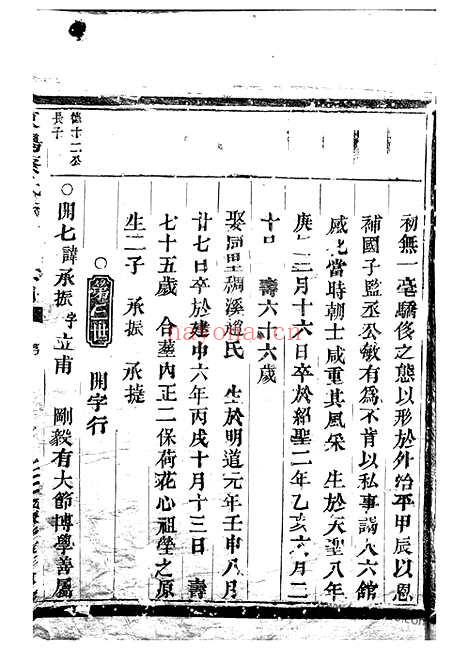 初無一毫驕侈之態以形於外治平甲辰以恩
補國子監丞公敏有為不肯以私事謁人六館
咸此當時朝士咸重其風采　生於天聖八年
庚　三月十六日卒於紹聖二年乙亥六月二
十日　壽六十六歲
娶同里稠溪梅氏　生於明道元年壬申八月
廿七日卒於建中六年丙戌十月十三日　壽
七十五歲　合塟內正二保荷花心祖塋之原
生二子　承振　承㨗
○第七世　開字行
德十二公
長子
○開七諱承振字立甫　剛毅有大節博學善屬
nayona.cn